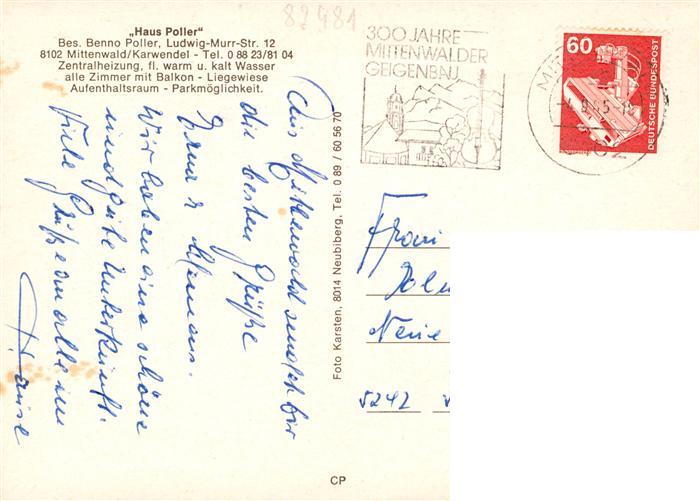 82481
„Haus Poller"
Bes. Benno Poller, Ludwig-Murr-Str. 12
8102 Mittenwald/Karwendel - Tel. 0 88 23/81 04
Zentralheizung, fl. warm u. kalt Wasser
alle Zimmer mit Balkon - Liegewiese
Aufenthaltsraum - Parkmöglichkeit.
300 JAHRE
MITTENWALDER
GEIGENBAU
60
DEUTSCHE BUNDESPOST
Aus Mittenwald sendet Dir
die besten Grüße
Erna &
Wir haben eine schöne
und gute Unterkunft.
Viele Grüße an alle im
Hause
Foto Karsten, 8014 Neubiberg, Tel. 0 89 / 60 56 70
Frau
Neue
5242
CP